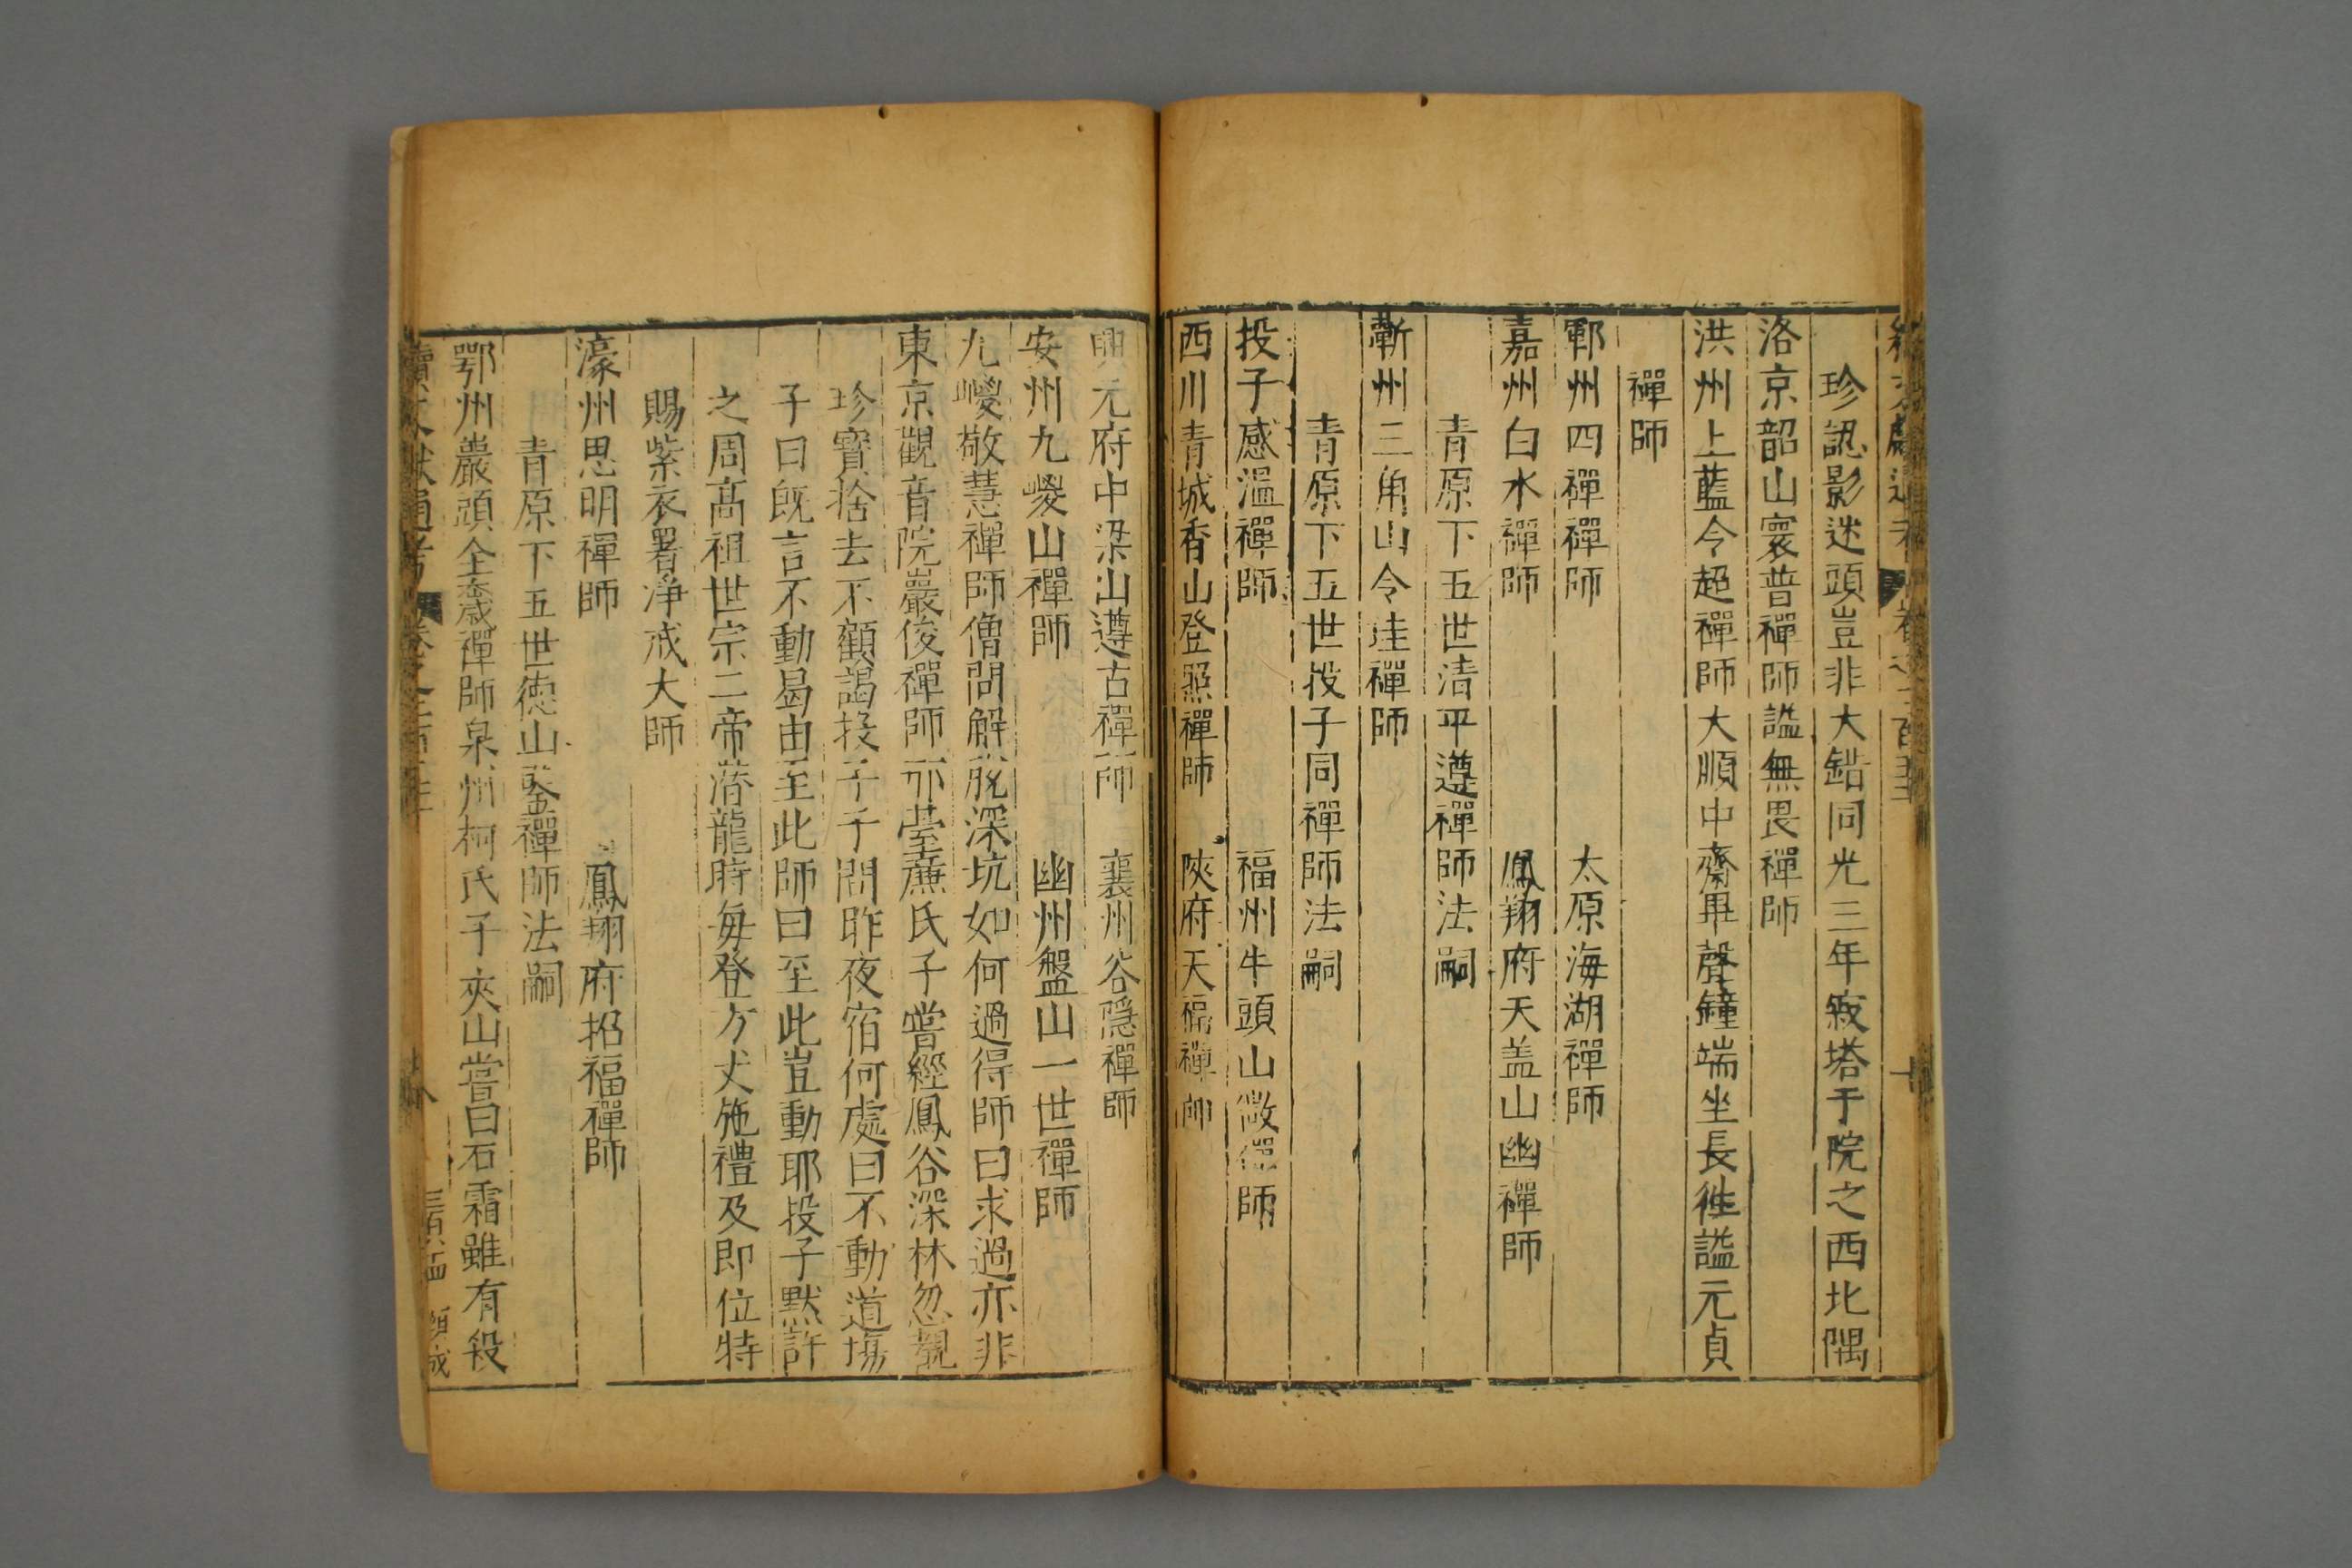 珍認影迷頭豈非大錯同光三年寂塔于院之西北隅
洛京韶山寰普禪師謚無畏禪師
洪州上藍令超禪師大順中齋畢聲鐘端坐長徃謚元貞
禪師
鄆州四禪禪師 太原海湖禪師
嘉州白水禪師 鳳翔府天盖山幽禪師
青原下五世清平遵禪師法嗣
蘄州三角山令珪禪師
青原下五世投子同禪師法嗣
投子感溫禪師 福州牛頭山微禪師
西川青城香山登照禪師 陜府天福禪師
興元府中梁山遵古禪師 襄州谷隱禪師
安州九嵕山禪師 幽州盤山一世禪師
九嵕敬慧禪師僧問解脫深坑如何過得師曰求過亦非
東京觀音院巖俊禪師邢臺廉氏子嘗經鳳谷深林忽覩
珍寶捨去不顧謁投子子問昨夜宿何處曰不動道塲
子曰旣言不動曷由至此師曰至此豈動耶投子黙許
之周髙祖世宗二帝潜龍時毎登方丈施禮及即位特
賜紫衣署淨戒大師
濠州思明禪師 鳳翔府招福禪師
青原下五世徳山鑒禪師法嗣
鄂州巖頭全奯禪師泉州柯氏子夾山嘗曰石霜雖有殺
續文獻通考 卷之